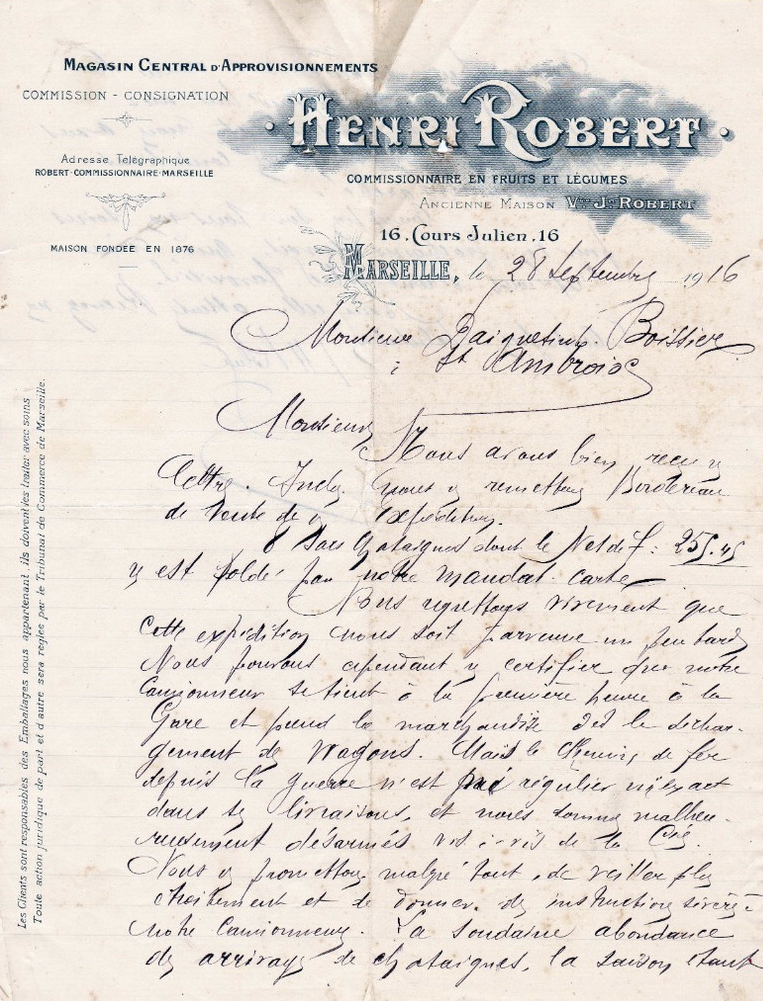 MAGASIN CENTRAL D'APPROVISIONNEMENTS
COMMISSION - CONSIGNATION
Adresse Télégraphique
ROBERT-COMMISSIONNAIRE-MARSEILLE
MAISON FONDEE EN 1876
HENRI ROBERT
COMMISSIONNAIRE EN FRUITS ET LÉGUMES
ANCIENNE MAISON Vve J. ROBERT
16, Cours Julien, 16
MARSEILLE, le 28 Septembre 1916
Monsieur Boissier
à St Ambroix
Monsieur, Nous avons bien reçu v
lettre. Incl. nous v remettons Bordereau
de Vente de v expédition.
8 Sacs Chataignes dont le Net de F: 255.45
v est soldé par notre mandat-carte
Nous regrettons vivement que
cette expédition nous soit parvenue un peu tard
Nous pouvons cependant v certifier que notre
Camionneur se tient à la première heure à la
Gare et prend la marchandise dès le déchar-
gement des Wagons. Mais le Chemin de fer
depuis la guerre n'est pas régulier ni exact
dans ses livraisons, et nous sommes malheu-
reusement désarmés vis-à-vis de la Cie.
Nous v promettons malgré tout, de veiller plus
étroitement et de donner des instructions sévères
notre Camionneur. La soudaine abondance
des arrivages de chataignes, la saison étant
Les Clients sont responsables des Emballages nous appartenant ils doivent les traiter avec soins
Toute action juridique de part et d'autre sera réglée par le Tribunal de Commerce de Marseille.